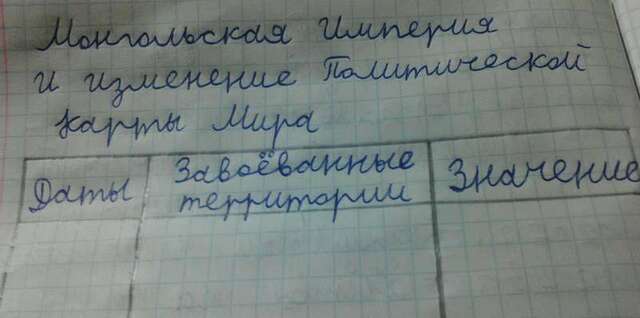 Монгольская Империя
и изменение Политической
карты Мира
Даты
Завоёванные
территории
Значение